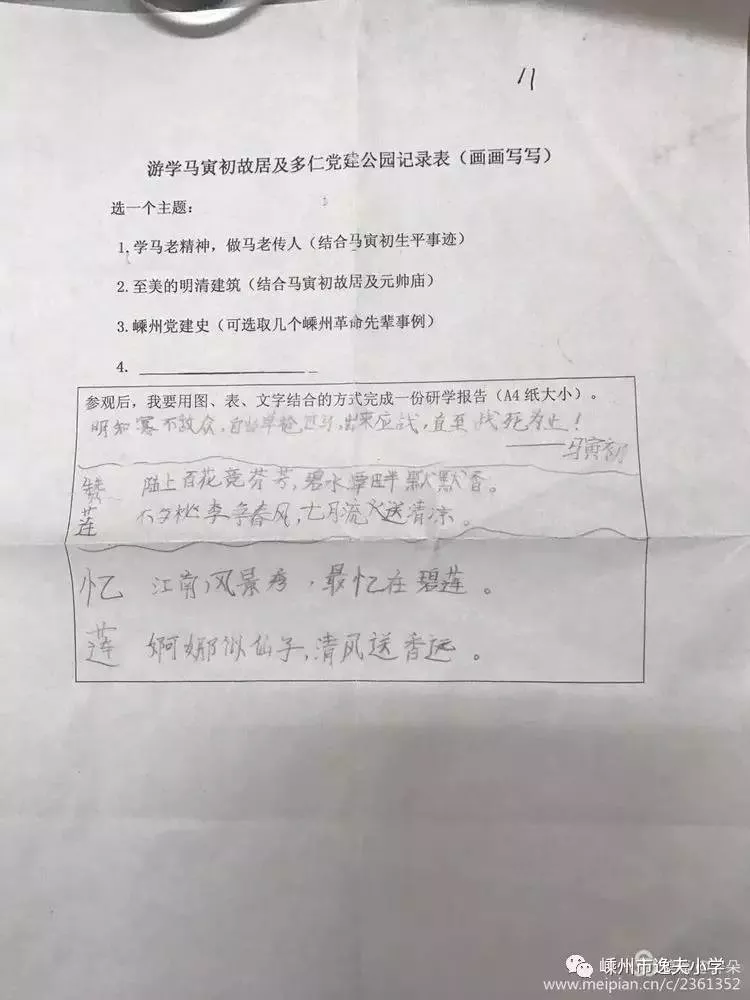 11
游学马寅初故居及多仁党建公园记录表（画画写写）
选一个主题：
1. 学马老精神，做马老传人（结合马寅初生平事迹）
2. 至美的明清建筑（结合马寅初故居及元帅庙）
3. 嵊州党建史（可选取几个嵊州革命先辈事例）
4.
参观后，我要用图、表、文字结合的方式完成一份研学报告（A4 纸大小）。
明知寡不敌众，自当单枪匹马，出来应战，直至战死为止！
——马寅初
赞莲
陌上百花竞芬芳，碧水潭畔默默香。
不与桃李争春风，七月流火送清凉。
忆莲
江南风景秀，最忆在碧莲。
婀娜似仙子，清风送香远。
嵊州市逸夫小学
www.meipian.cn/c/2361352